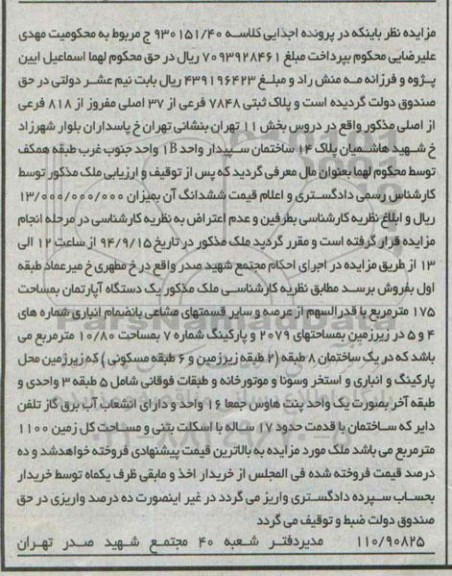 مزایده نظر باینکه در پرونده اجرایی کلاسه ۹۳۰۱۵۱/۴۰ ج مربوط به محکومیت مهدی
علیرضایی محکوم بپرداخت مبلغ ۷۰۹۳۹۲۸۴۶۱ ریال در حق محکوم لهما اسماعیل ایین
پژوه و فرزانه مه منش راد و مبلغ ۴۳۹۱۹۶۴۲۳ ریال بابت نیم عشر دولتی در حق
صندوق دولت گردیده است و پلاک ثبتی ۷۸۴۸ فرعی از ۳۷ اصلی مفروز از ۸۱۸ فرعی
از اصلی مذکور واقع در دروس بخش ۱۱ تهران بنشانی تهران خ پاسداران بلوار شهرزاد
خ شهید هاشمیان پلاک ۱۴ ساختمان سپیدار واحد 1B واحد جنوب غرب طبقه همکف
توسط محکوم لهما بعنوان مال معرفی گردید که پس از توقیف و ارزیابی ملک مذکور توسط
کارشناس رسمی دادگستری و اعلام قیمت ششدانگ آن بمیزان ۱۳/۰۰۰/۰۰۰/۰۰۰
ریال و ابلاغ نظریه کارشناسی بطرفین و عدم اعتراض به نظریه کارشناسی در مرحله انجام
مزایده قرار گرفته است و مقرر گردید ملک مذکور در تاریخ ۹۴/۹/۱۵ از ساعت ۱۲ الی
۱۳ از طریق مزایده در اجرای احکام مجتمع شهید صدر واقع در خ مطهری خ میرعماد طبقه
اول بفروش برسد مطابق نظریه کارشناسی ملک مذکور یک دستگاه آپارتمان بمساحت
۱۷۵ مترمربع با قدرالسهم از عرصه و سایر قسمتهای مشاعی بانضمام انباری شماره های
۴ و ۵ در زیرزمین بمساحتهای ۲۰۷۹ و پارکینگ شماره ۷ بمساحت ۱۰/۸۰ مترمربع می
باشد که در یک ساختمان ۸ طبقه (۲ طبقه زیرزمین و ۶ طبقه مسکونی) که زیرزمین محل
پارکینگ و انباری و استخر وسونا و موتورخانه و طبقات فوقانی شامل ۵ طبقه ۳ واحدی و
طبقه آخر بصورت یک واحد پنت هاوس جمعا ۱۶ واحد و دارای انشعاب آب برق گاز تلفن
دایر که ساختمان با قدمت حدود ۱۷ ساله با اسکلت بتنی و مساحت کل زمین ۱۱۰۰
مترمربع می باشد ملک مورد مزایده به بالاترین قیمت پیشنهادی فروخته خواهدشد و ده
درصد قیمت فروخته شده فی المجلس از خریدار اخذ و مابقی ظرف یکماه توسط خریدار
بحساب سپرده دادگستری واریز می گردد در غیر اینصورت ده درصد واریزی در حق
صندوق دولت ضبط و توقیف می گردد
۱۱۰/۹۰۸۲۵ مدیردفتر شعبه ۴۰ مجتمع شهید صدر تهران